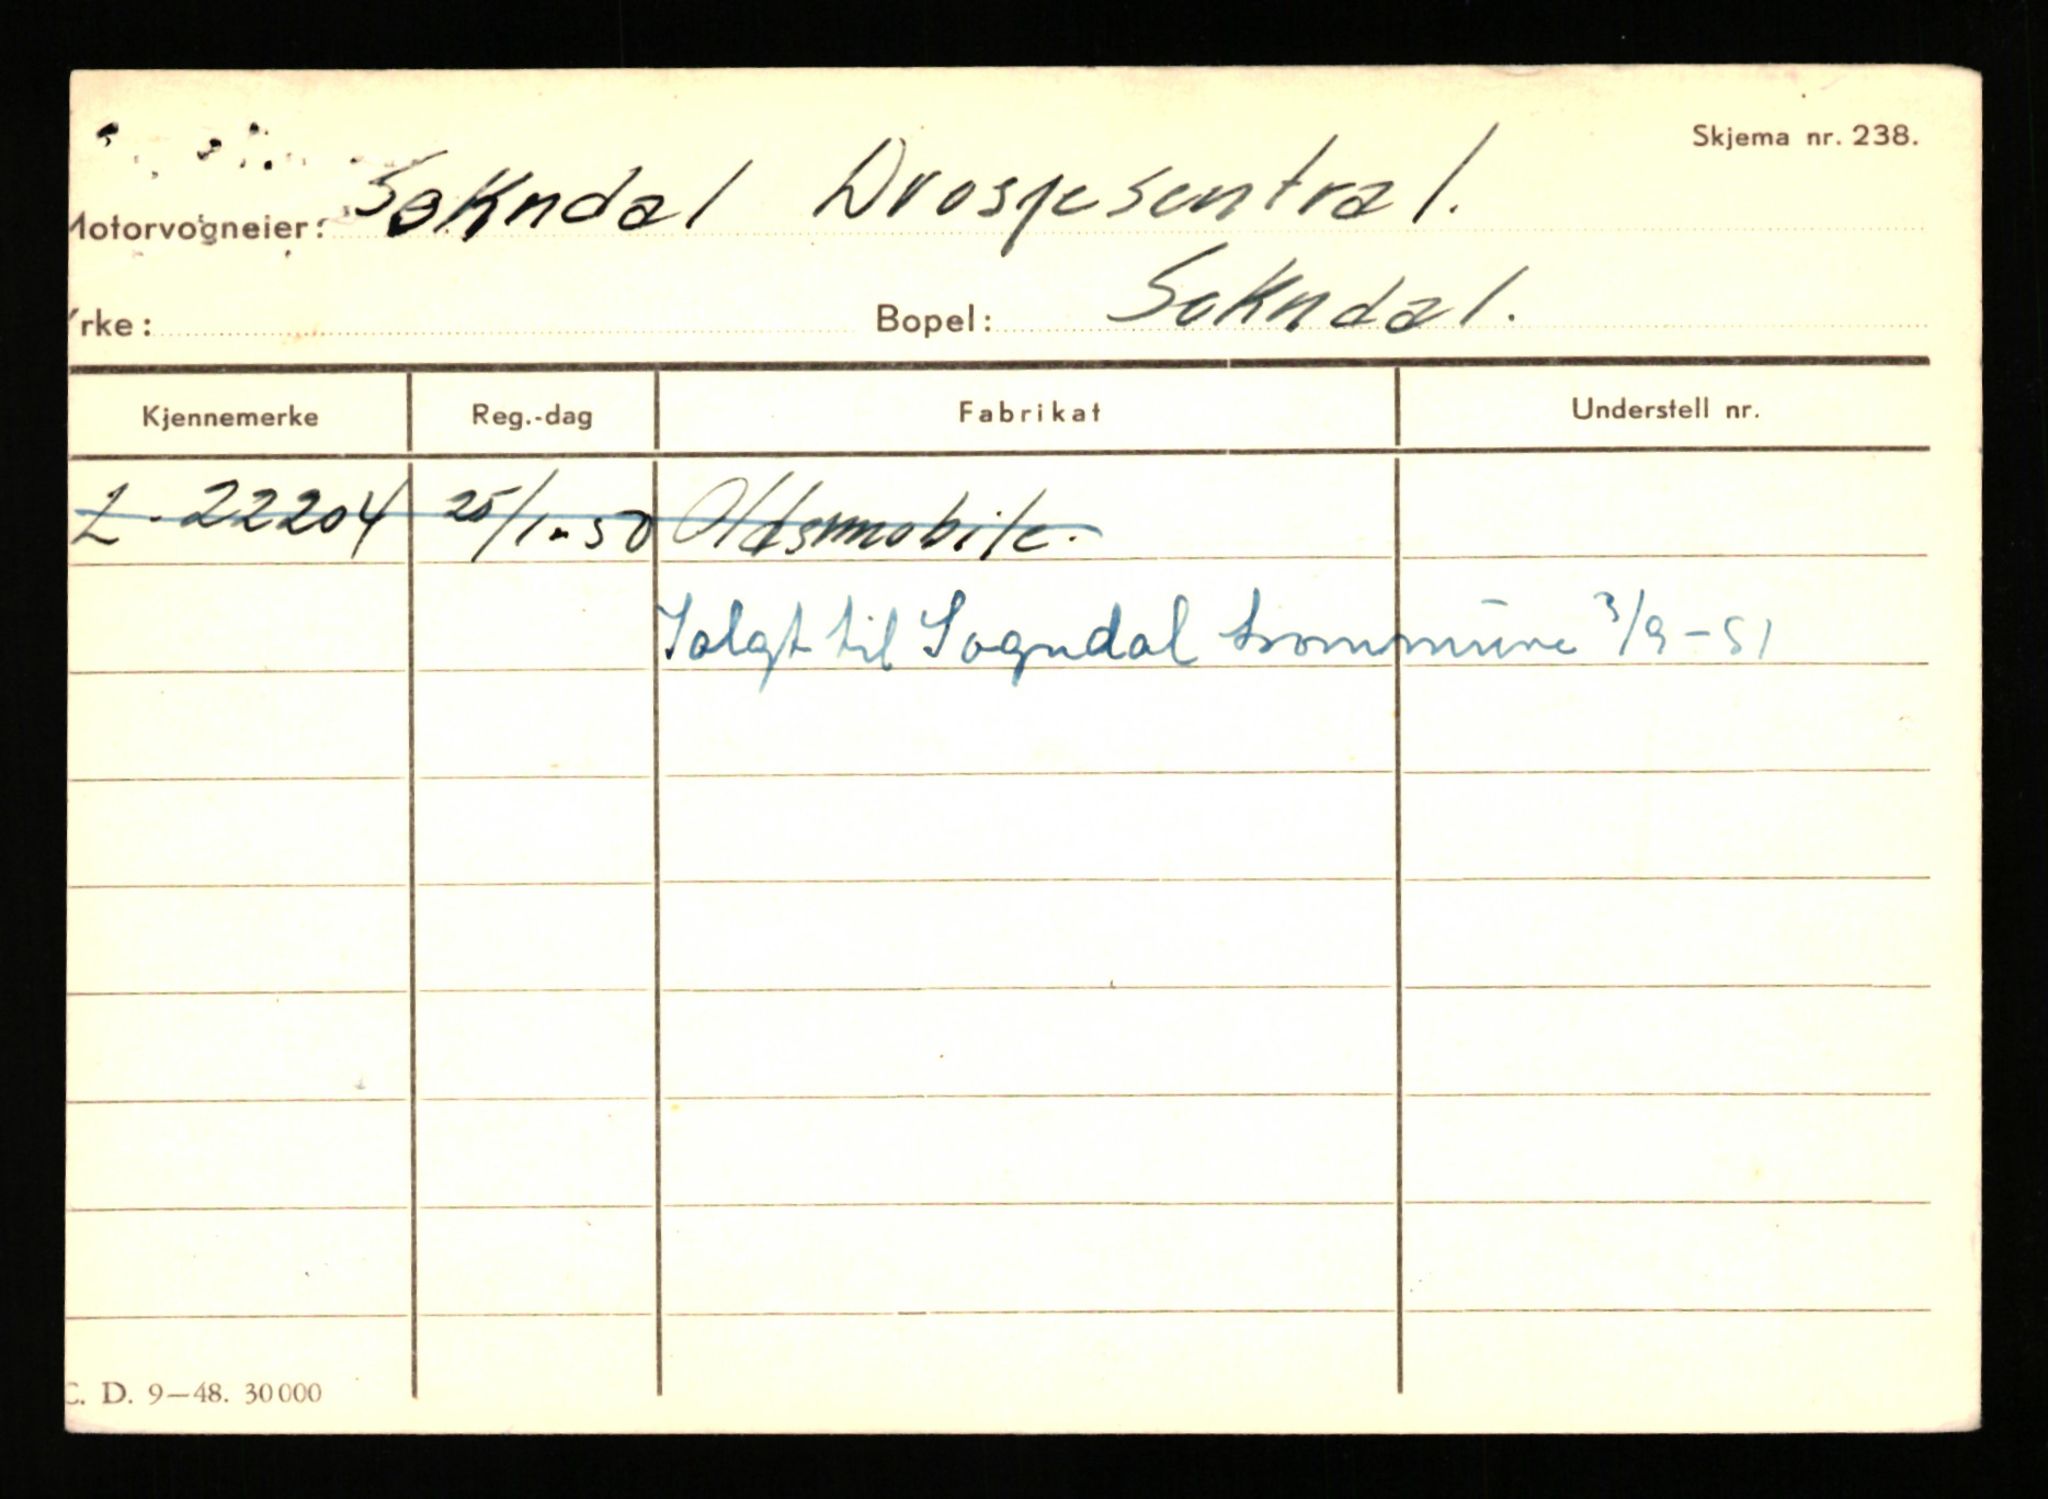 Skjema nr. 238.
Motorvogneier: Sokndal Drosjesentral.
Yrke: Bopel: Sokndal.
Kjennemerke Reg.-dag Fabrikat Understell nr.
L - 22204 25/1-50 Oldsmobile.
Solgt til Sogndal kommune 3/9-51
C. D. 9—48. 30000